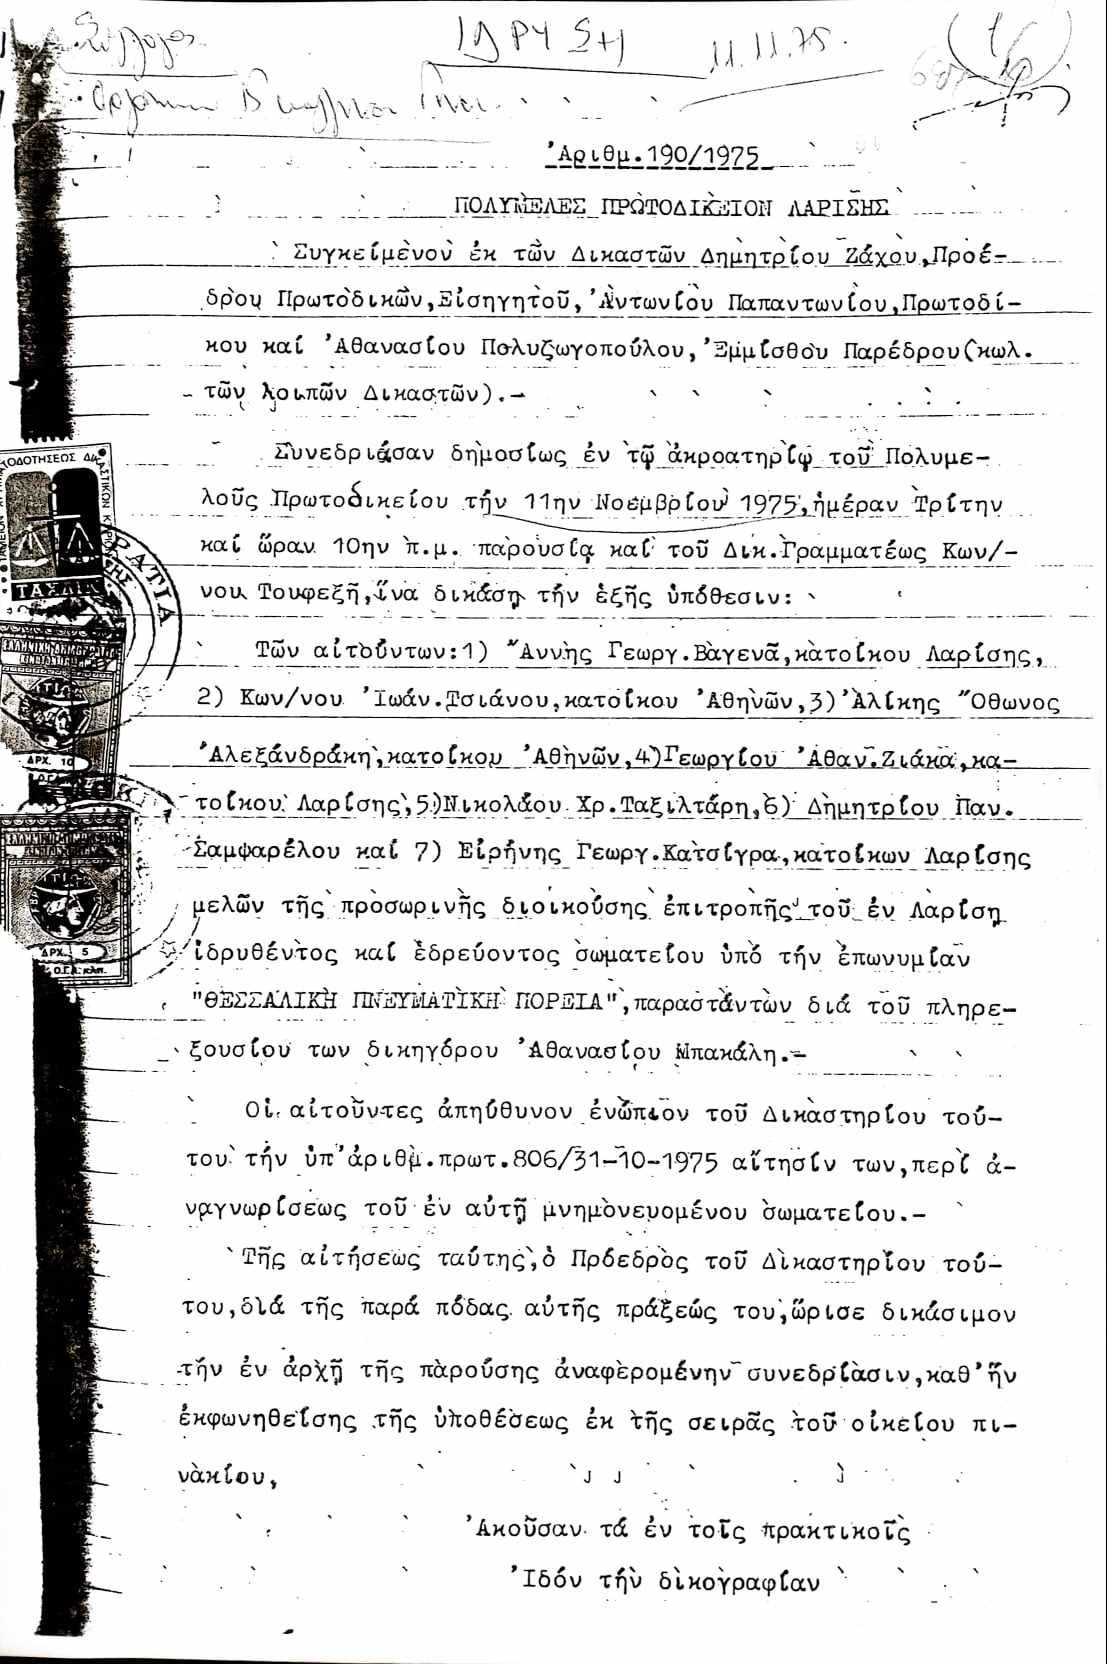 Σύλλογος
ΙΔΡΥΣΗ 11.11.75.
Ἀριθμ.190/1975
ΠΟΛΥΜΕΛΕΣ ΠΡΩΤΟΔΙΚΕΙΟΝ ΛΑΡΙΣΗΣ
Συγκείμενον ἐκ τῶν Δικαστῶν Δημητρίου Ζάχου,Προέ-
δρου Πρωτοδικῶν,Εἰσηγητοῦ,Ἀντωνίου Παπαντωνίου,Πρωτοδί-
κου καί Ἀθανασίου Πολυζωγοπούλου,Ἐμμίσθου Παρέδρου(κωλ.
τῶν λοιπῶν Δικαστῶν).-
Συνεδριάσαν δημοσίως ἐν τῷ ἀκροατηρίῳ τοῦ Πολυμε-
λοῦς Πρωτοδικείου τήν 11ην Νοεμβρίου 1975,ἡμέραν Τρίτην
καί ὥραν 10ην π.μ. παρουσίᾳ καί τοῦ Δικ.Γραμματέως Κων/-
νου Τουφεξῆ,ἵνα δικάσῃ τήν ἑξῆς ὑπόθεσιν:
Τῶν αἰτούντων:1) Ἄννης Γεωργ.Βαγενᾶ,κατοίκου Λαρίσης,
2) Κων/νου Ἰωάν.Τσιάνου,κατοίκου Ἀθηνῶν,3)Ἀλίκης Ὄθωνος
Ἀλεξάνδράκη,κατοίκου Ἀθηνῶν,4)Γεωργίου Ἀθαν.Ζιάκα,κα-
τοίκου Λαρίσης,5)Νικολάου Χρ.Ταξιλτάρη,6) Δημητρίου Παν.
Σαμψαρέλου καί 7) Εἰρήνης Γεωργ.Κατσίγρα,κατοίκων Λαρίσης
μελῶν τῆς προσωρινῆς διοικούσης ἐπιτροπῆς τοῦ ἐν Λαρίσῃ
ἱδρυθέντος καί ἑδρεύοντος σωματείου ὑπό τήν ἐπωνυμίαν
"ΘΕΣΣΑΛΙΚΗ ΠΝΕΥΜΑΤΙΚΗ ΠΟΡΕΙΑ",παραστάντων διά τοῦ πληρε-
ξουσίου των δικηγόρου Ἀθανασίου Μπακάλη.-
Οἱ αἰτοῦντες ἀπηύθυνον ἐνώπιον τοῦ Δικαστηρίου τού-
του τήν ὑπ'ἀριθμ.πρωτ.806/31-10-1975 αἴτησίν των,περί ἀ-
ναγνωρίσεως τοῦ ἐν αὐτῇ μνημονευομένου σωματείου.-
Τῆς αἰτήσεως ταύτης,ὁ Πρόεδρος τοῦ Δικαστηρίου τού-
του,διά τῆς παρά πόδας αὐτῆς πράξεώς του,ὥρισε δικάσιμον
τήν ἐν ἀρχῇ τῆς παρούσης ἀναφερομένην συνεδρίασιν,καθ'ἥν
ἐκφωνηθείσης τῆς ὑποθέσεως ἐκ τῆς σειρᾶς τοῦ οἰκείου πι-
νακίου,
Ἀκοῦσαν τά ἐν τοῖς πρακτικοῖς
Ἰδόν τήν δικογραφίαν
ΔΡΧ. 10
ΔΡΧ. 5